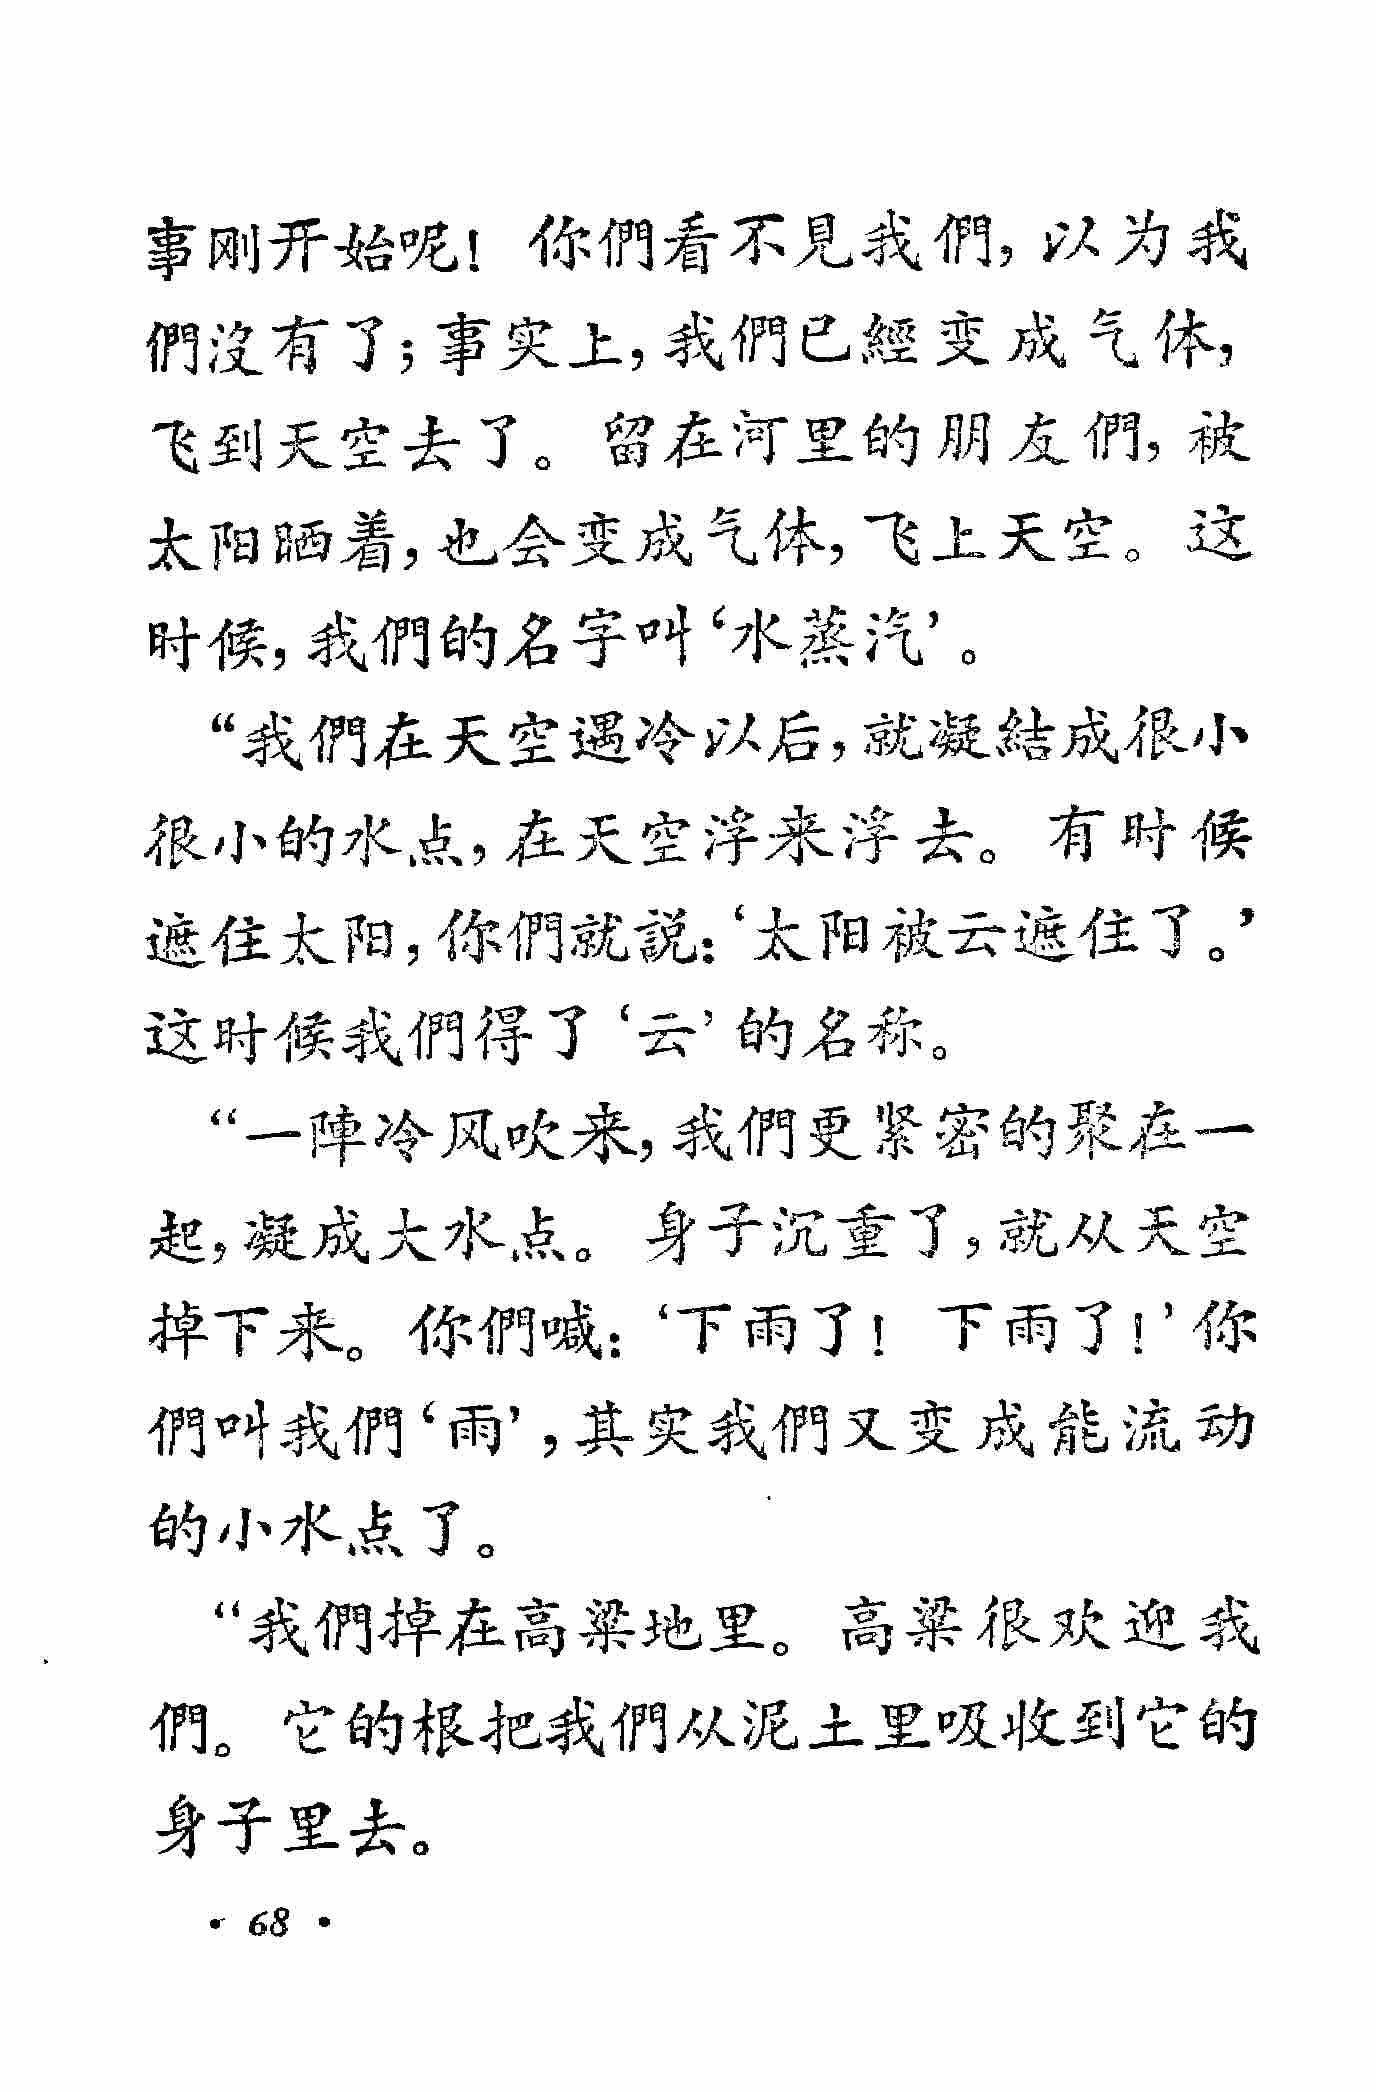 事刚开始呢！ 你們看不見我們，以为我
們沒有了；事实上，我們已經变成气体，
飞到天空去了。 留在河里的朋友們，被
太阳晒着，也会变成气体，飞上天空。 这
时候，我們的名字叫‘水蒸汽’。
“我們在天空遇冷以后，就凝結成很小
很小的水点，在天空浮来浮去。 有时候
遮住太阳，你們就説：‘太阳被云遮住了。’
这时候我們得了‘云’的名称。
“一陣冷风吹来，我們更紧密的聚在一
起，凝成大水点。 身子沉重了，就从天空
掉下来。 你們喊：‘下雨了！ 下雨了！’你
們叫我們‘雨’，其实我們又变成能流动
的小水点了。
“我們掉在高粱地里。 高粱很欢迎我
們。 它的根把我們从泥土里吸收到它的
身子里去。
· 68 ·